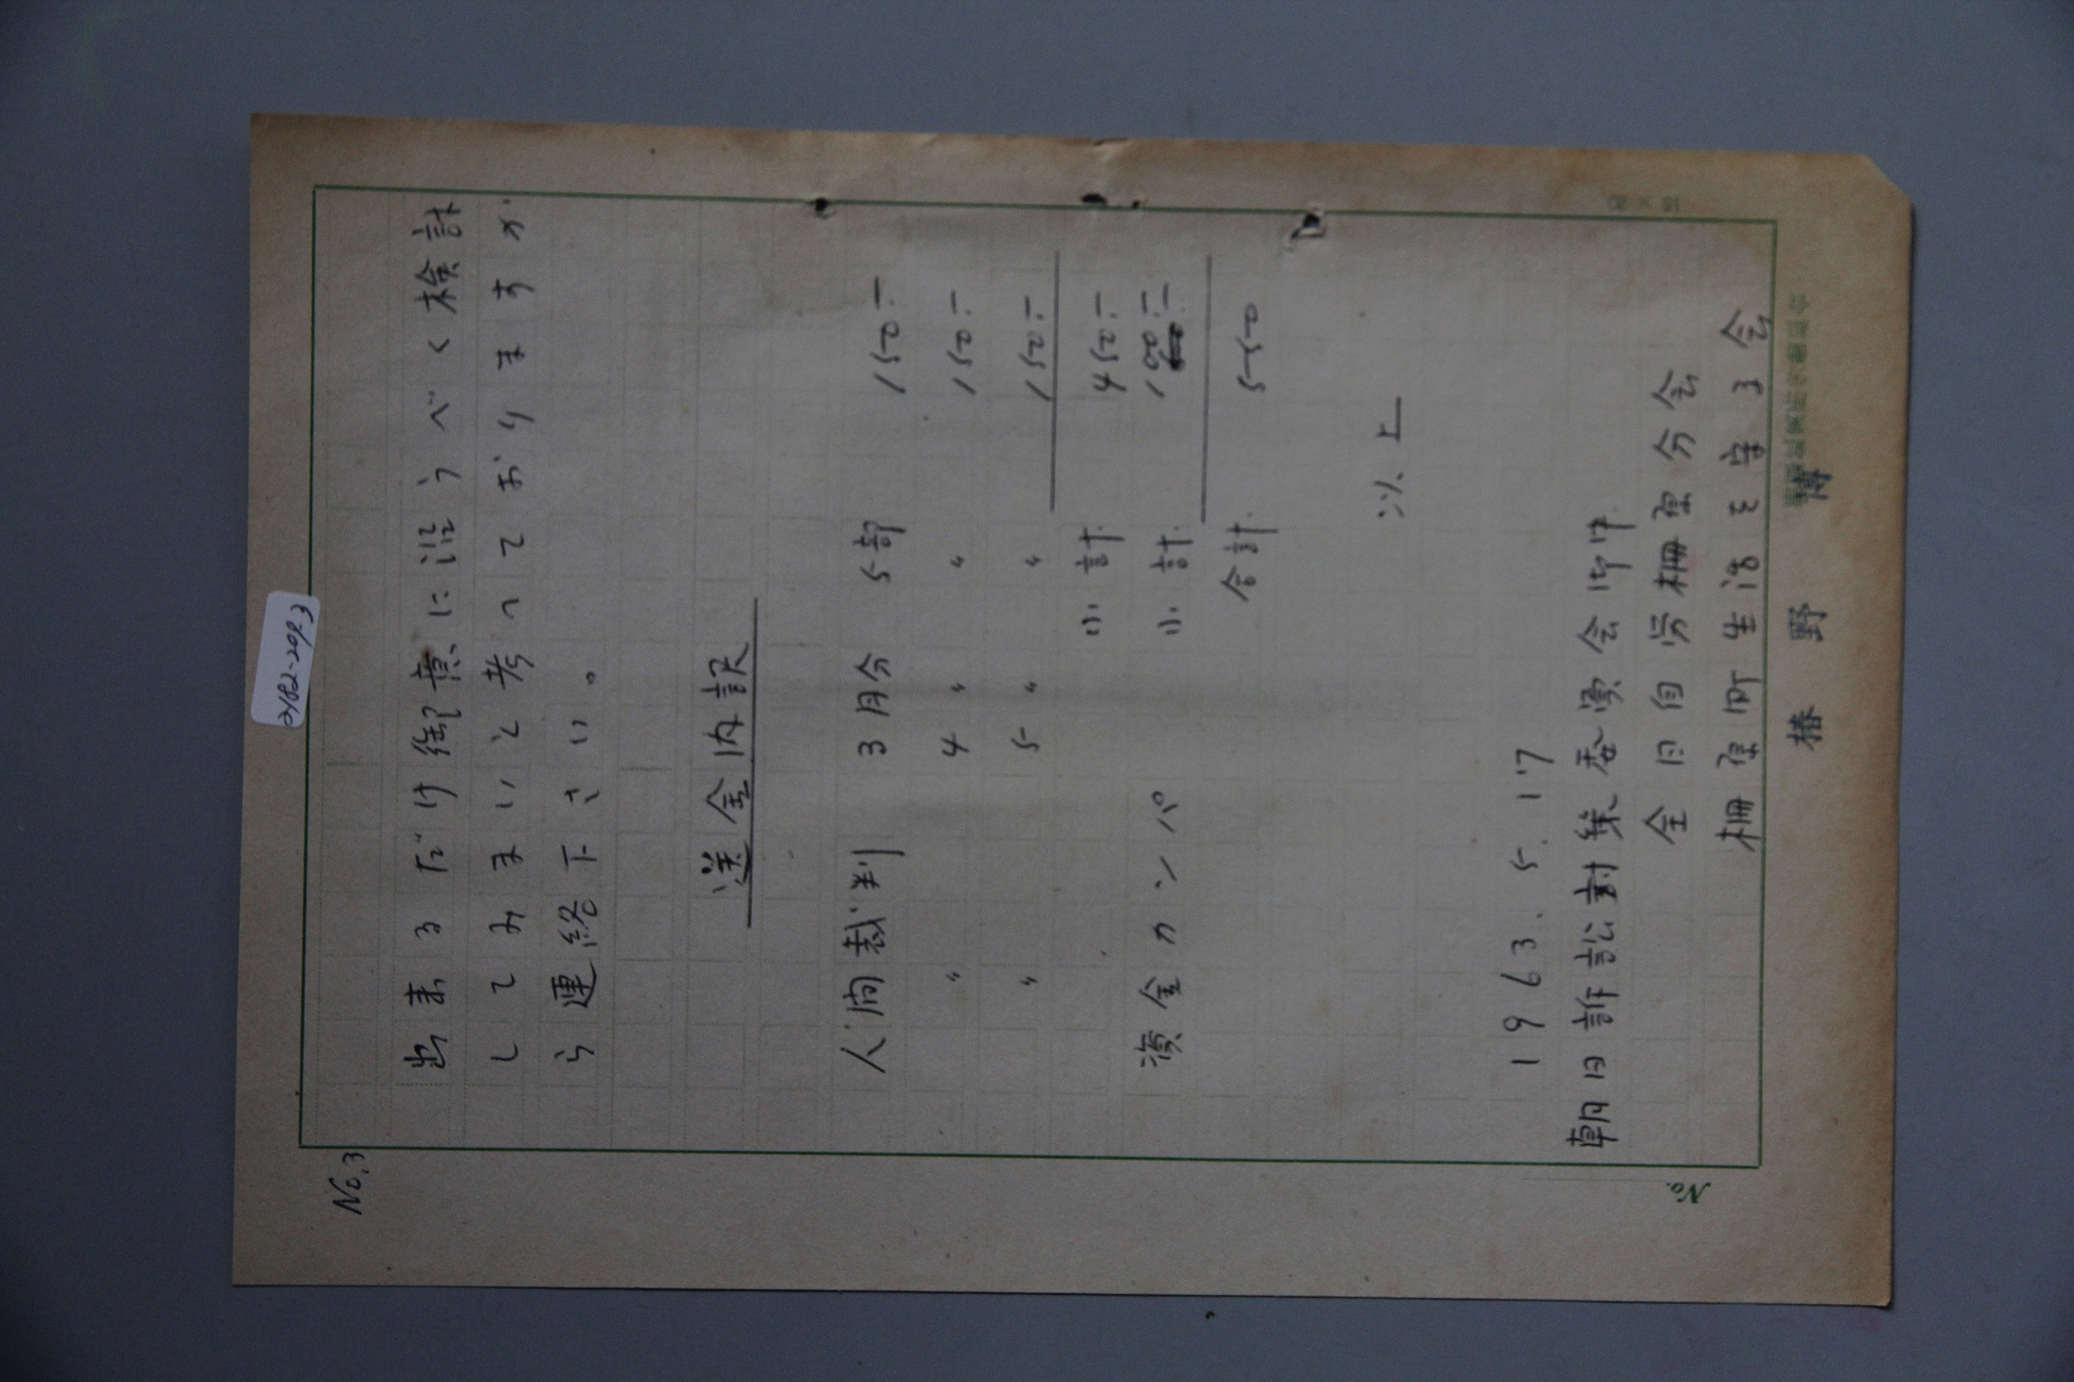 No.3
出来るだけ御意に沿うべく検討
してみまいと考へておりますか
ら連絡下さい。
送金内訳
人間裁判 3月分 5部 150.-
〃 4〃 〃 150.-
〃 5〃 〃 150.-
小計 450.-
資金カンパ 小計 100.-
合計 550
以上
1963.5.17
朝日訴訟対策委員会御中
全日自労柵原分会
柵原町生活を守る会
椿野 博
No.